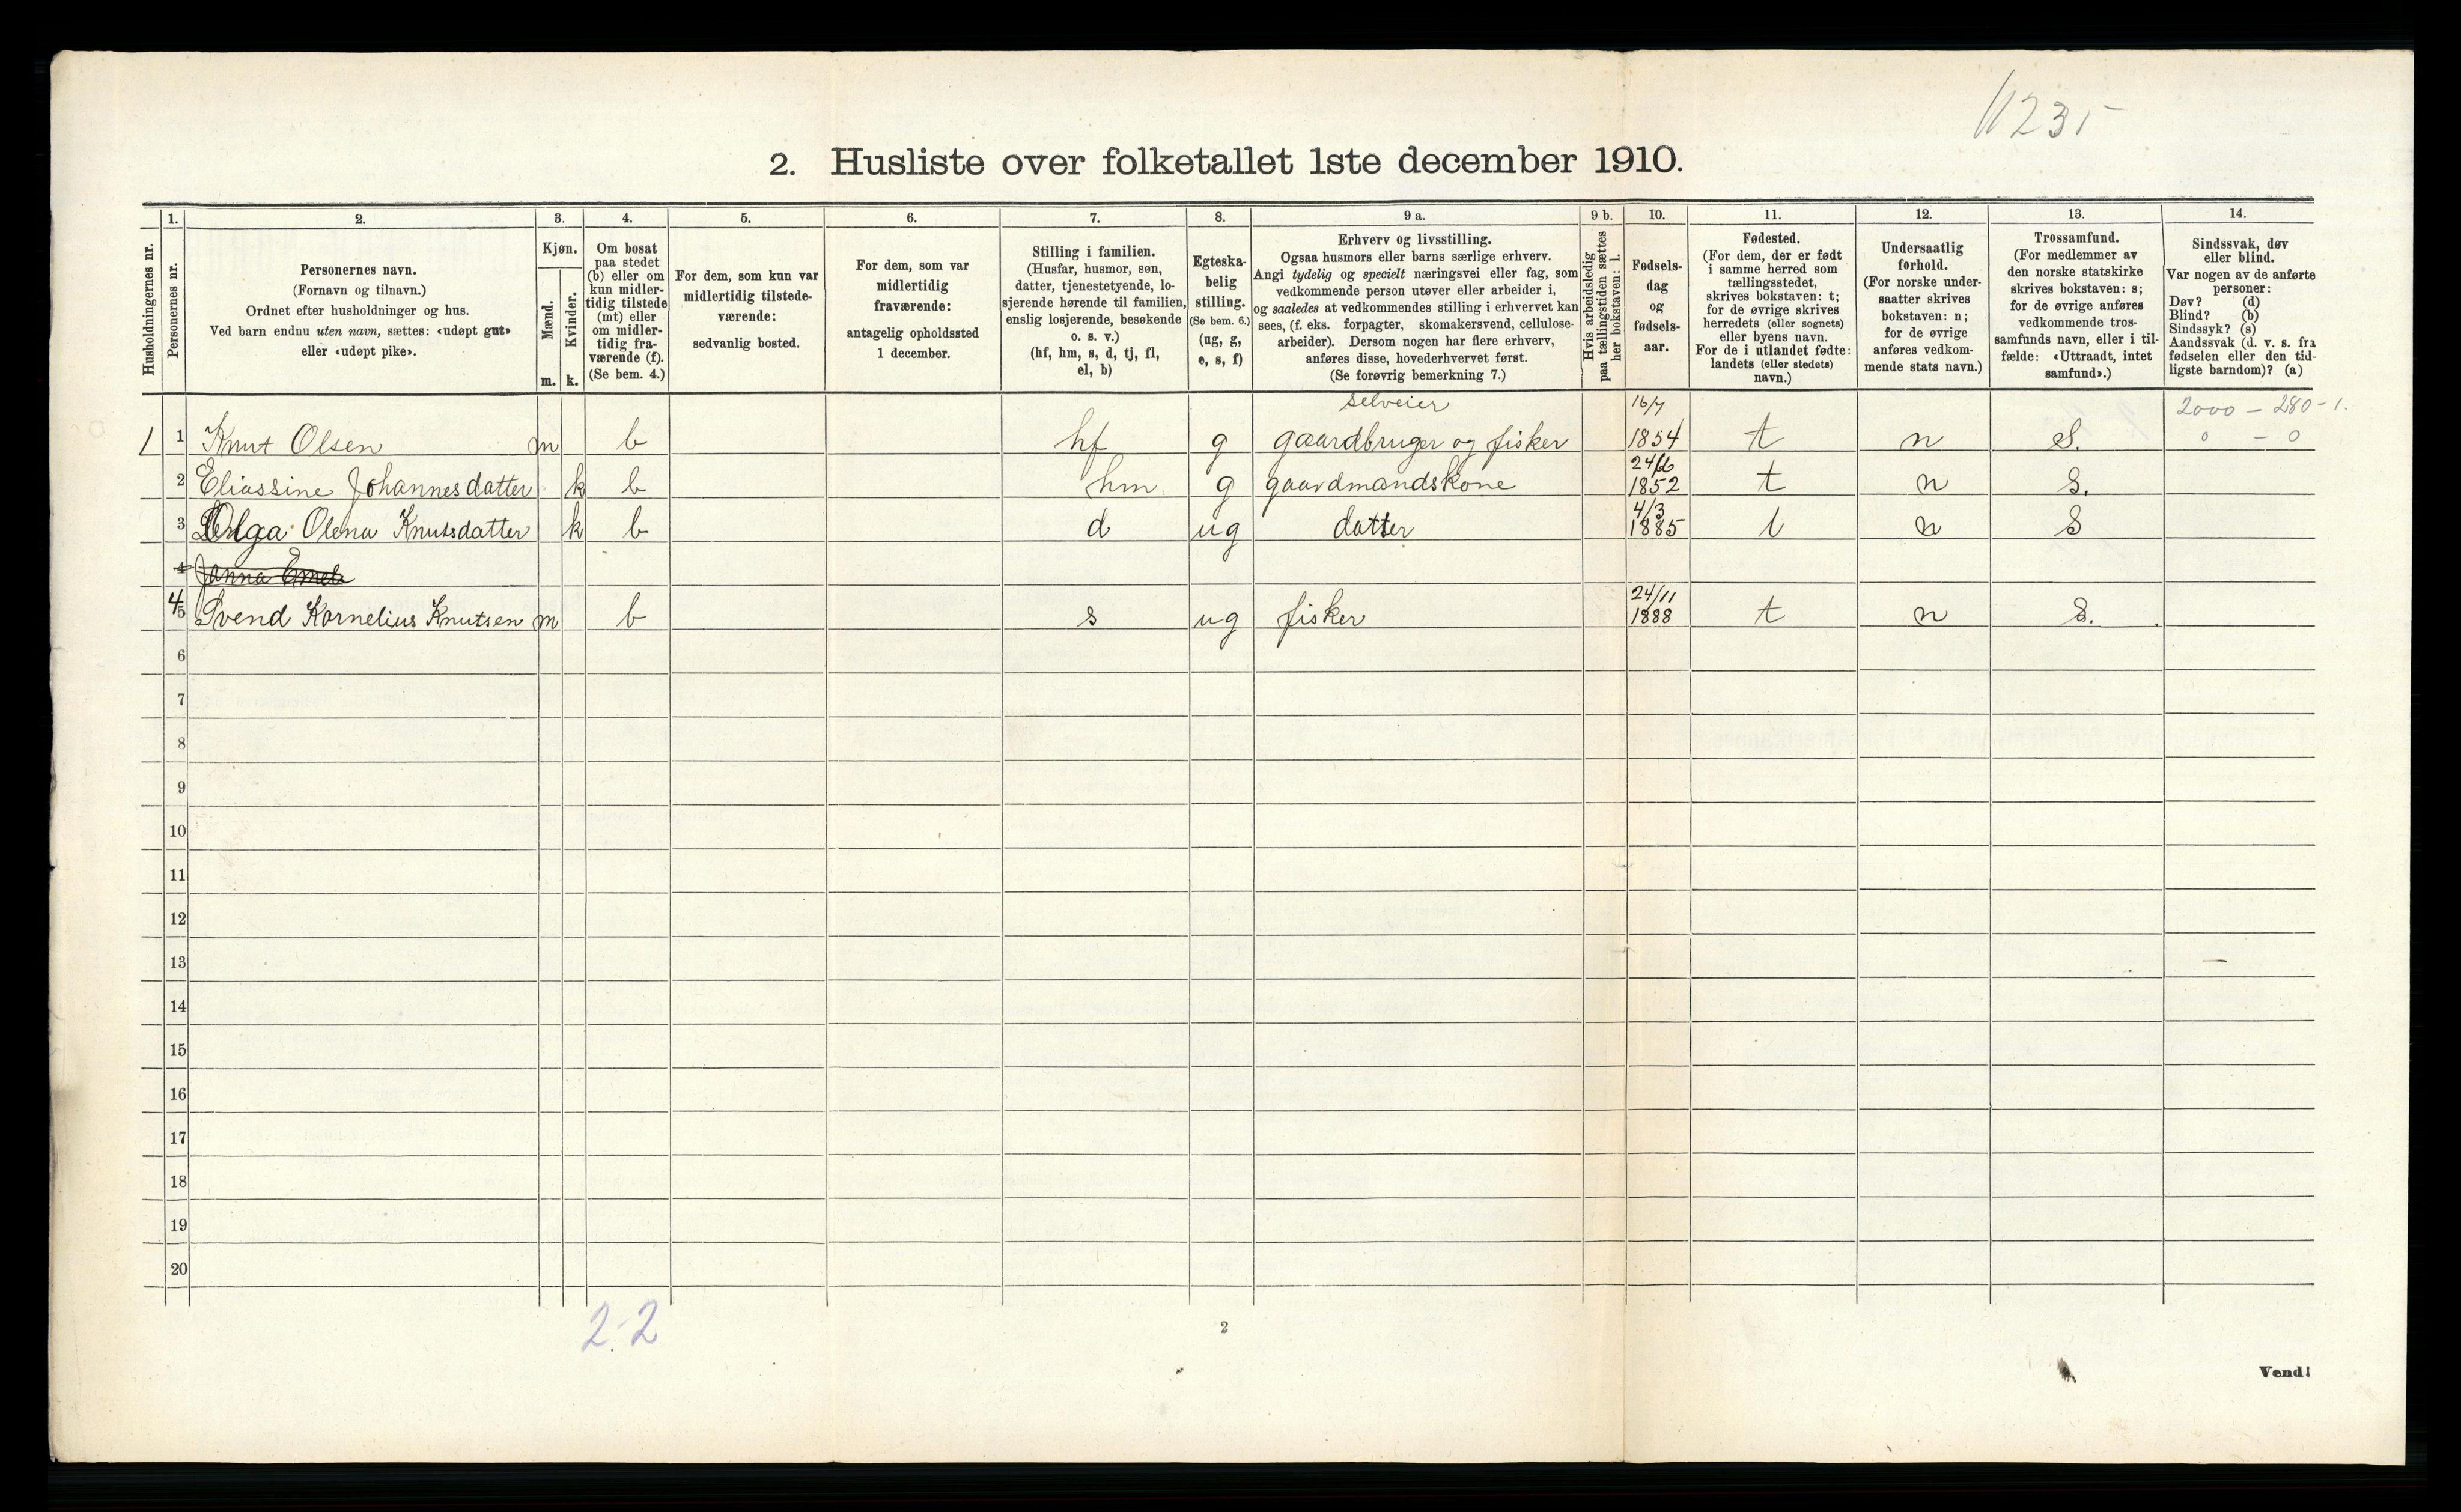 11235
2. Husliste over folketallet 1ste december 1910.
Husholdningernes nr.
1.
Personernes nr.
2.
Personernes navn.
(Fornavn og tilnavn.)
Ordnet efter husholdninger og hus.
Ved barn endnu uten navn, sættes: «udøpt gut»
eller «udøpt pike».
3.
Kjøn.
Mænd.
m.
Kvinder.
k.
4.
Om bosat
paa stedet
(b) eller om
kun midler-
tidig tilstede
(mt) eller
om midler-
tidig fra-
værende (f).
(Se bem. 4.)
5.
For dem, som kun var
midlertidig tilstede-
værende:
sedvanlig bosted.
6.
For dem, som var
midlertidig
fraværende:
antagelig opholdssted
1 december.
7.
Stilling i familien.
(Husfar, husmor, søn,
datter, tjenestetyende, lo-
sjerende hørende til familien,
enslig losjerende, besøkende
o. s. v.)
(hf, hm, s, d, tj, fl,
el, b)
8.
Egteska-
belig
stilling.
(Se bem. 6.)
(ug, g,
e, s, f)
9 a.
Erhverv og livsstilling.
Ogsaa husmors eller barns særlige erhverv.
Angi tydelig og specielt næringsvei eller fag, som
vedkommende person utøver eller arbeider i,
og saaledes at vedkommendes stilling i erhvervet kan
sees, (f. eks. forpagter, skomakersvend, cellulose-
arbeider). Dersom nogen har flere erhverv,
anføres disse, hovederhvervet først.
(Se forøvrig bemerkning 7.)
9 b.
Hvis arbeidsledig
paa tællingstiden sættes
her bokstaven: l.
10.
Fødsels-
dag
og
fødsels-
aar.
11.
Fødested.
(For dem, der er født
i samme herred som
tællingsstedet,
skrives bokstaven: t;
for de øvrige skrives
herredets (eller sognets)
eller byens navn.
For de i utlandet fødte:
landets (eller stedets)
navn.)
12.
Undersaatlig
forhold.
(For norske under-
saatter skrives
bokstaven: n;
for de øvrige
anføres vedkom-
mende stats navn.)
13.
Trossamfund.
(For medlemmer av
den norske statskirke
skrives bokstaven: s;
for de øvrige anføres
vedkommende tros-
samfunds navn, eller i til-
fælde: «Uttraadt, intet
samfund».)
14.
Sindssvak, døv
eller blind.
Var nogen av de anførte
personer:
Døv? (d)
Blind? (b)
Sindssyk? (s)
Aandssvak (d. v. s. fra
fødselen eller den tid-
ligste barndom)? (a)
selveier 16/7 2000 - 280 - 1.
1 1 Knut Olsen m b hf g gaardbruger og fisker 1854 t n S. 0 - 0
24/6
2 Eliassine Johannesdatter k b hm g gaardmandskone 1852 t n S.
4/3
3 Olga Olena Knutsdatter k b d ug datter 1885 t n S
4 Janna Emel
24/11
4/5 Svend Kornelius Knutsen m b s ug fisker 1888 t n S.
6
7
8
9
10
11
12
13
14
15
16
17
18
19
20
2-2
2
Vend!